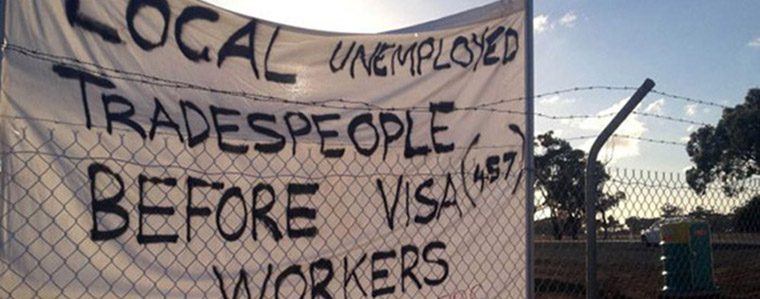 LOCAL UNEMPLOYED
TRADESPEOPLE
BEFORE VISA (457)
WORKERS